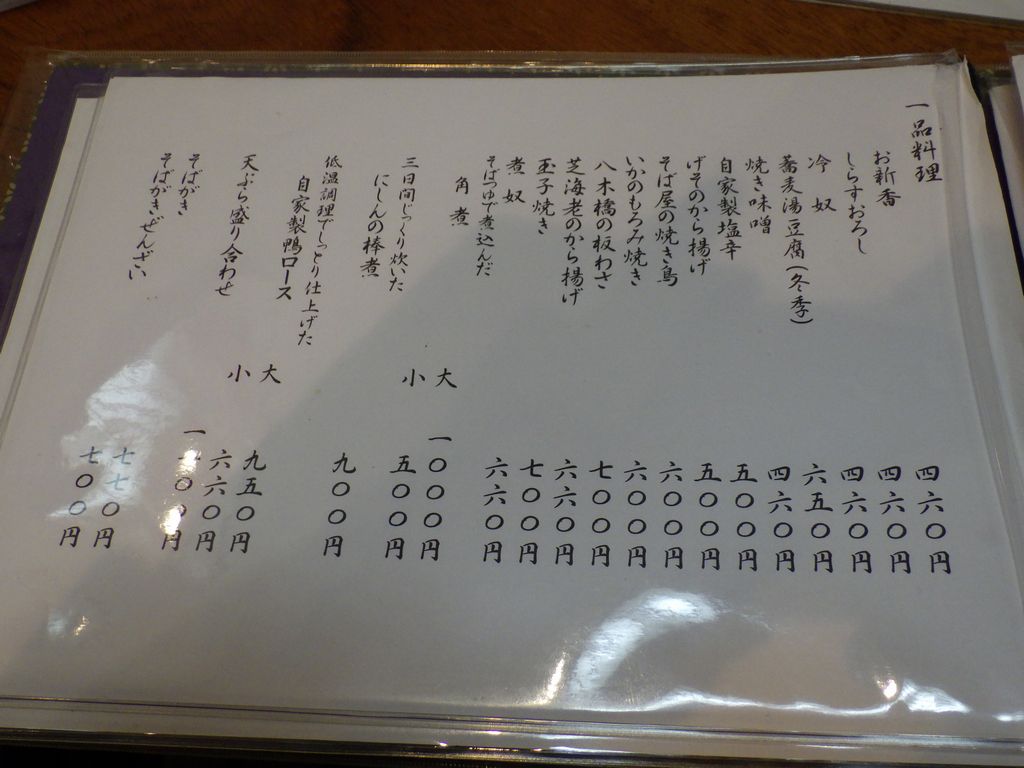 一品料理
お新香 四六〇円
しらすおろし 四六〇円
冷奴 四六〇円
蕎麦湯豆腐(冬季) 六五〇円
焼き味噌 四六〇円
自家製塩辛 五〇〇円
げそのから揚げ 五〇〇円
そば屋の焼き鳥 六〇〇円
いかのもろみ焼き 六〇〇円
八木橋の板わさ 七〇〇円
芝海老のから揚げ 六六〇円
玉子焼き 七〇〇円
煮奴 六六〇円
そばつゆで煮込んだ
角煮 大 一〇〇〇円
小 五〇〇円
三日間じっくり炊いた
にしんの棒煮 九〇〇円
低温調理でしっとり仕上げた
自家製鴨ロース 大 九五〇円
小 六六〇円
天ぷら盛り合わせ
そばがき 七七〇円
そばがきぜんざい 七〇〇円